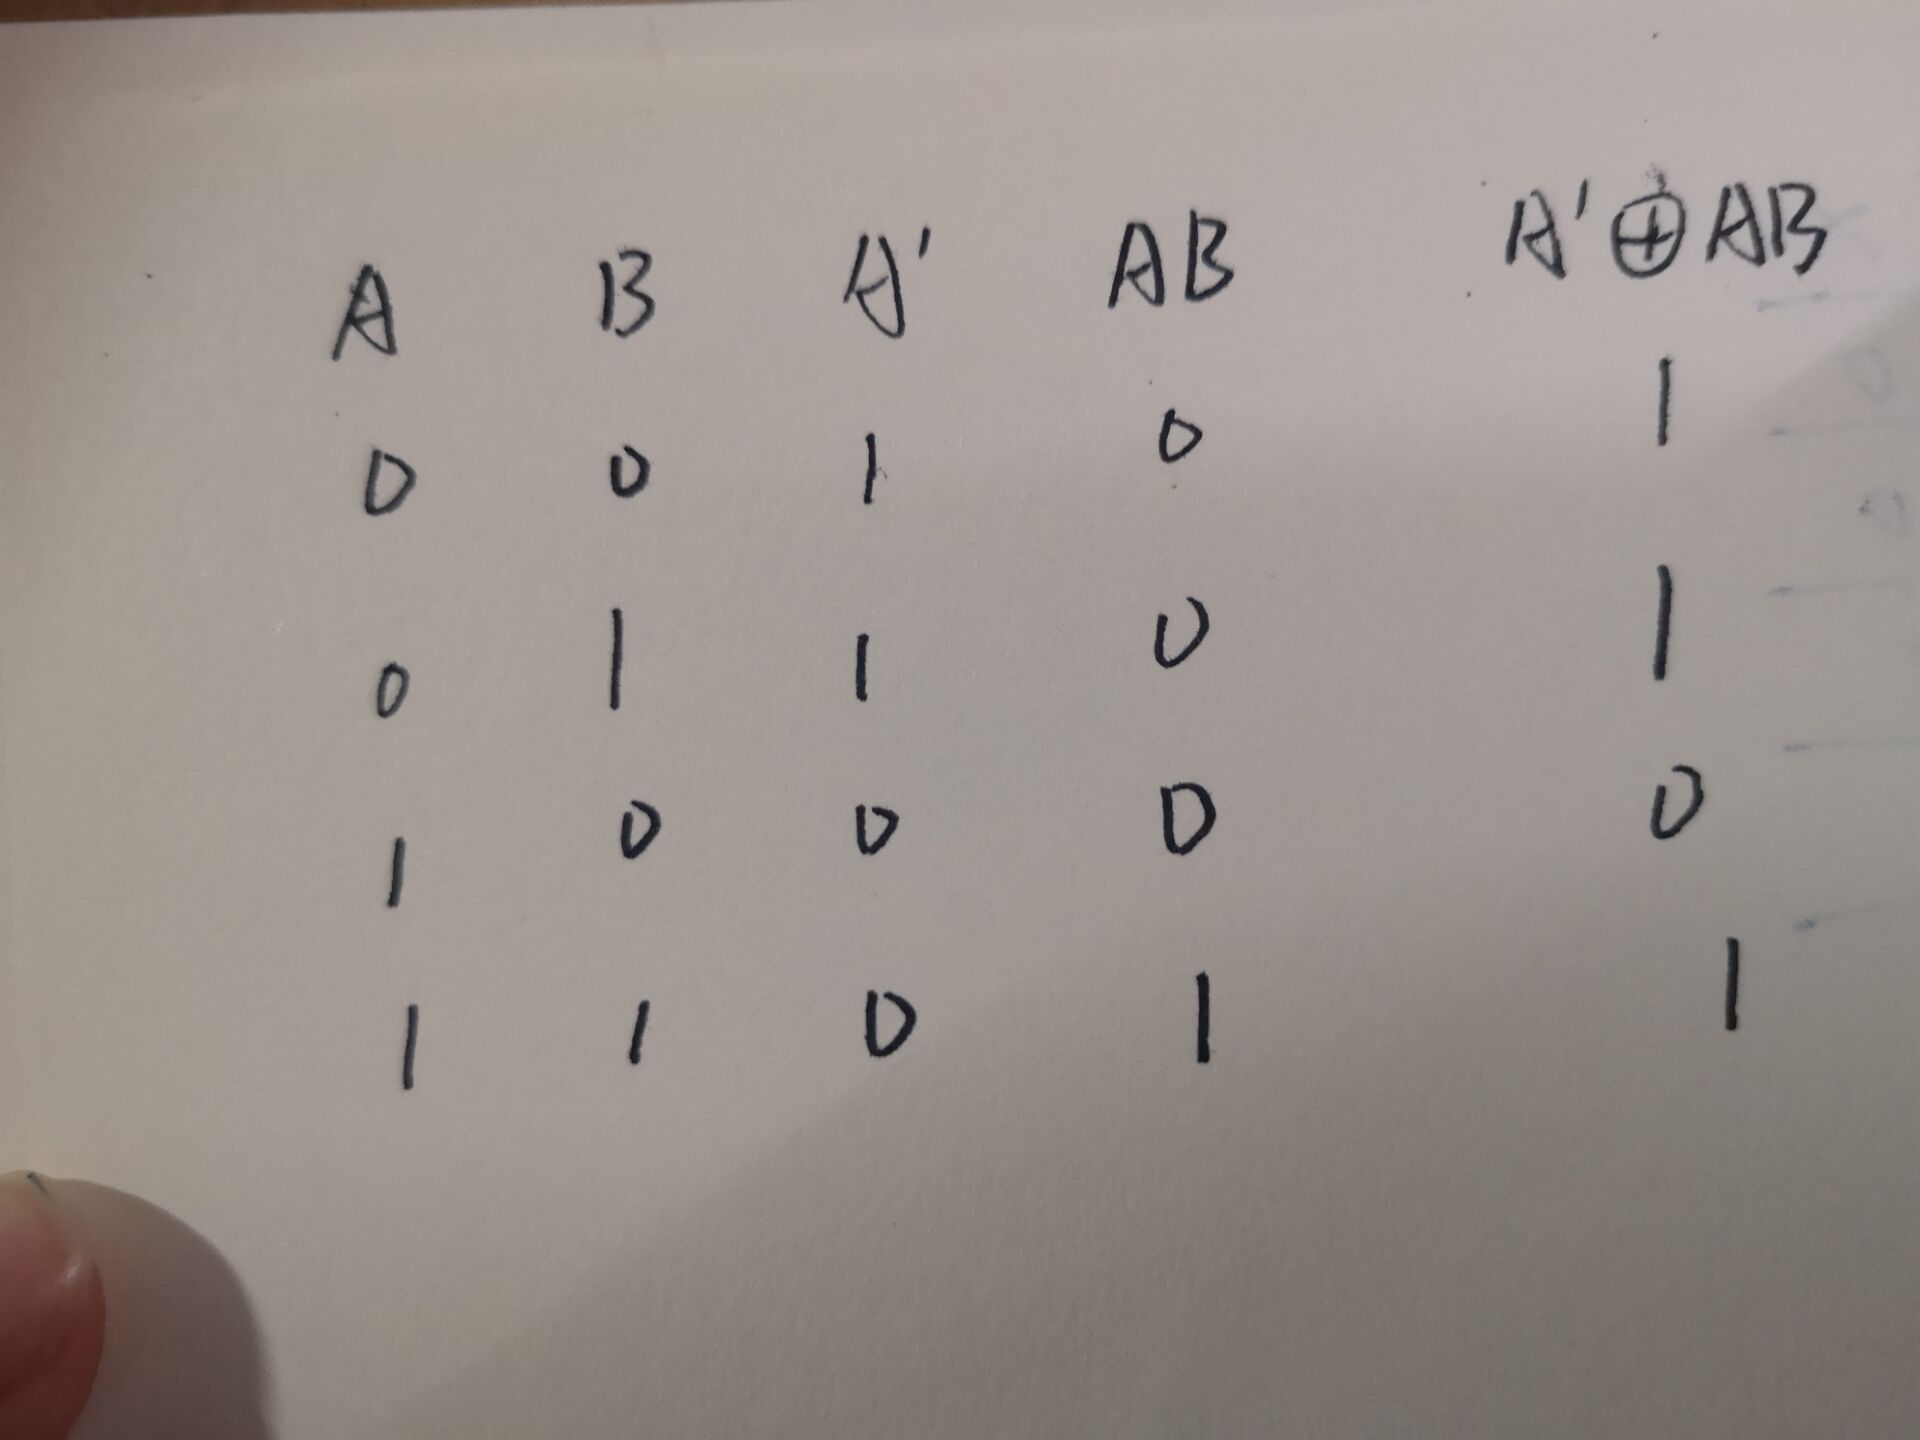 A B A' AB A'⊕AB
0 0 1 0 1
0 1 1 0 1
1 0 0 0 0
1 1 0 1 1